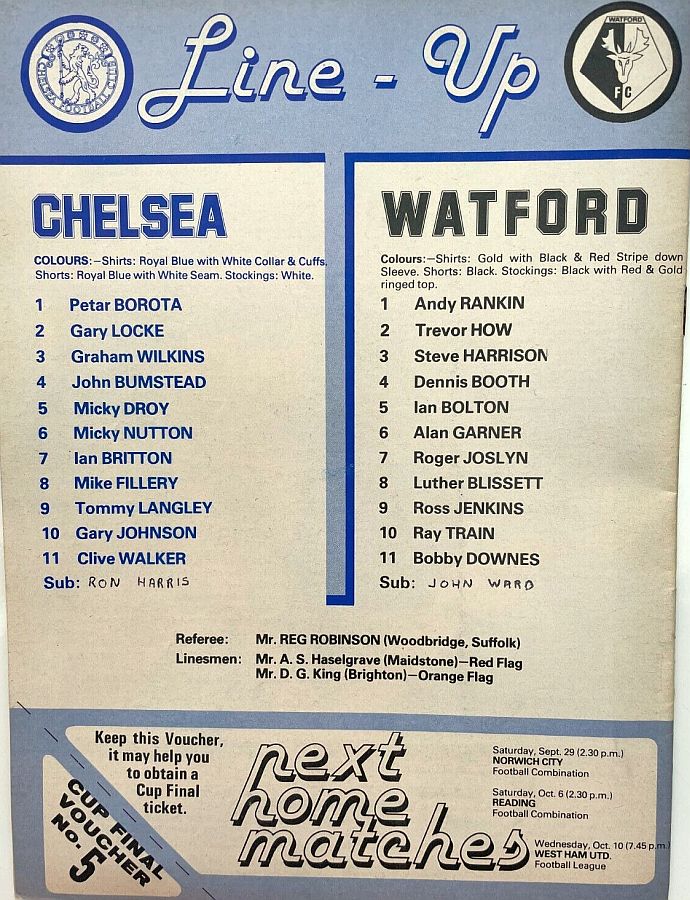 Line - Up
CHELSEA FOOTBALL CLUB
WATFORD
FC
CHELSEA
COLOURS:—Shirts: Royal Blue with White Collar & Cuffs.
Shorts: Royal Blue with White Seam. Stockings: White.
1 Petar BOROTA
2 Gary LOCKE
3 Graham WILKINS
4 John BUMSTEAD
5 Micky DROY
6 Micky NUTTON
7 Ian BRITTON
8 Mike FILLERY
9 Tommy LANGLEY
10 Gary JOHNSON
11 Clive WALKER
Sub: RON HARRIS
WATFORD
Colours:—Shirts: Gold with Black & Red Stripe down
Sleeve. Shorts: Black. Stockings: Black with Red & Gold
ringed top.
1 Andy RANKIN
2 Trevor HOW
3 Steve HARRISON
4 Dennis BOOTH
5 Ian BOLTON
6 Alan GARNER
7 Roger JOSLYN
8 Luther BLISSETT
9 Ross JENKINS
10 Ray TRAIN
11 Bobby DOWNES
Sub: JOHN WARD
Referee: Mr. REG ROBINSON (Woodbridge, Suffolk)
Linesmen: Mr. A. S. Haselgrave (Maidstone)—Red Flag
Mr. D. G. King (Brighton)—Orange Flag
Keep this Voucher,
it may help you
to obtain a
Cup Final
ticket.
CUP FINAL
VOUCHER
No. 5
next
home
matches
Saturday, Sept. 29 (2.30 p.m.)
NORWICH CITY
Football Combination
Saturday, Oct. 6 (2.30 p.m.)
READING
Football Combination
Wednesday, Oct. 10 (7.45 p.m.)
WEST HAM UTD.
Football League